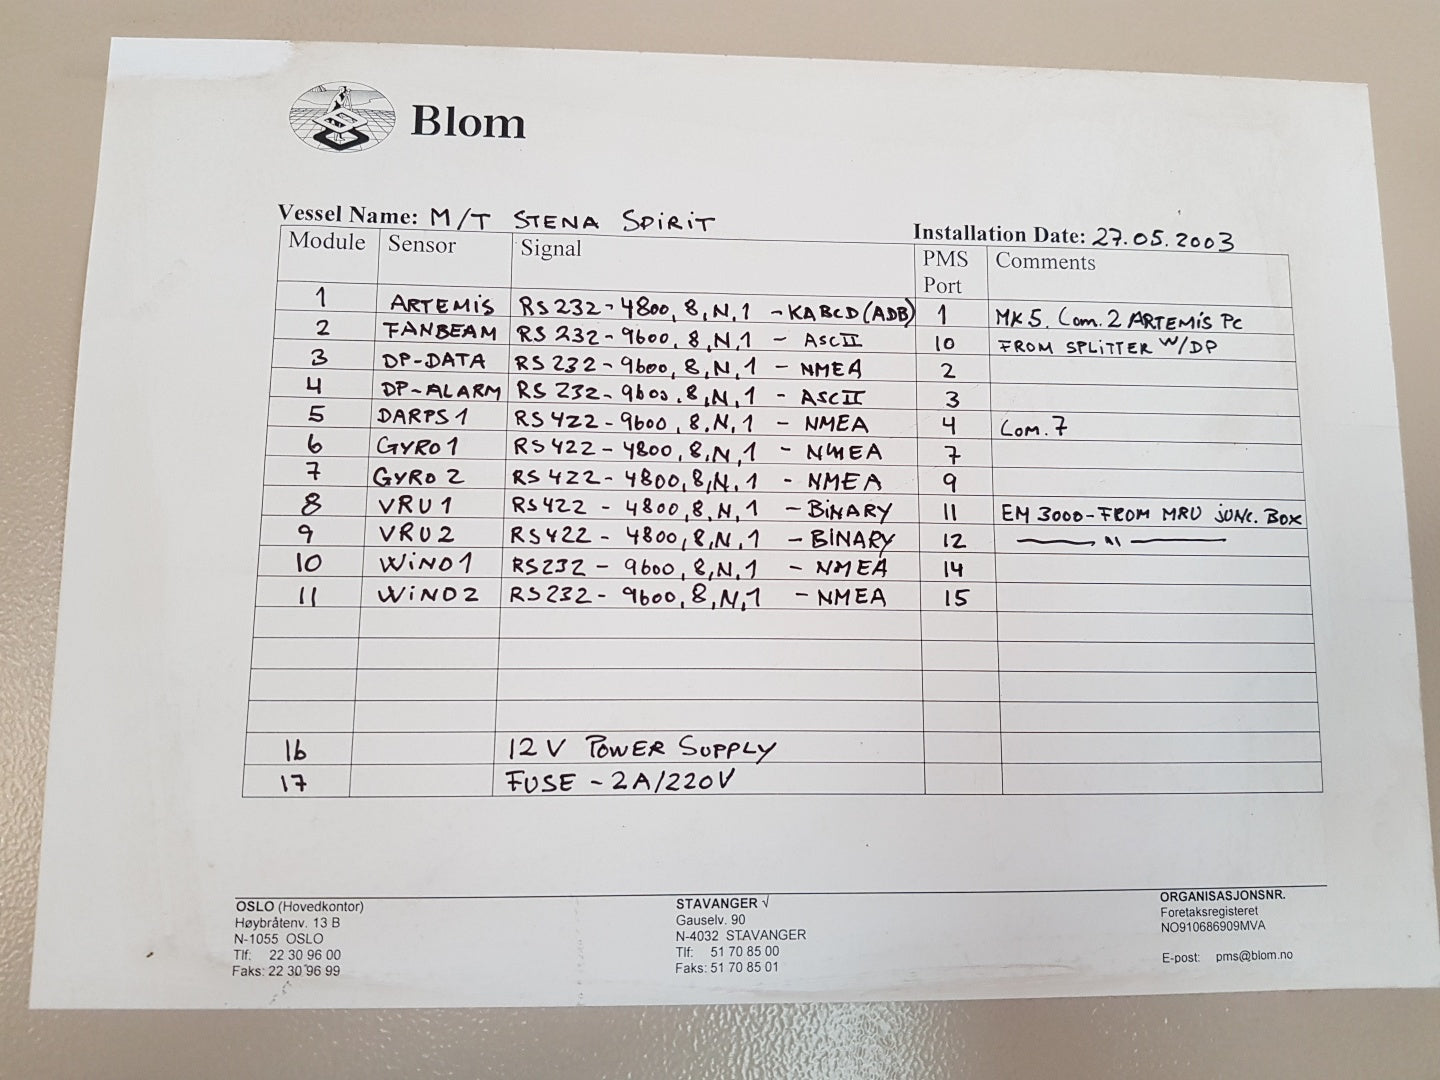 Blom
Vessel Name: M/T STENA SPIRIT
Installation Date: 27.05.2003
Module Sensor Signal PMS Port Comments
1 ARTEMIS RS232-4800,8,N,1 -KABCD(ADB) 1 MK5. Com.2 ARTEMIS PC
2 FANBEAM RS 232-9600,8,N,1 - ASCII 10 FROM SPLITTER W/DP
3 DP-DATA RS 232-9600,8,N,1 - NMEA 2
4 DP-ALARM RS 232-9600.8,N,1 - ASCII 3
5 DARPS1 RS422-9600,8.N,1 - NMEA 4 Com.7
6 GYRO1 RS422-4800,8,N,1 - NMEA 7
7 GYRO2 RS422-4800,8,N.1 - NMEA 9
8 VRU1 RS422 - 4800,8,N,1 - BINARY 11 EM 3000-FROM MRU JUNC. BOX
9 VRU2 RS422 - 4800,8,N,1 - BINARY 12 —— " ——
10 WIND1 RS232 - 9600,8,N.1 - NMEA 14
11 WIND2 RS232 - 9600,8,N,1 - NMEA 15
16 12V POWER SUPPLY
17 FUSE - 2A/220V
OSLO (Hovedkontor)
Høybråtenv. 13 B
N-1055 OSLO
Tlf: 22 30 96 00
Faks: 22 30 96 99
STAVANGER √
Gauselv. 90
N-4032 STAVANGER
Tlf: 51 70 85 00
Faks: 51 70 85 01
ORGANISASJONSNR.
Foretaksregisteret
NO910686909MVA
E-post: pms@blom.no